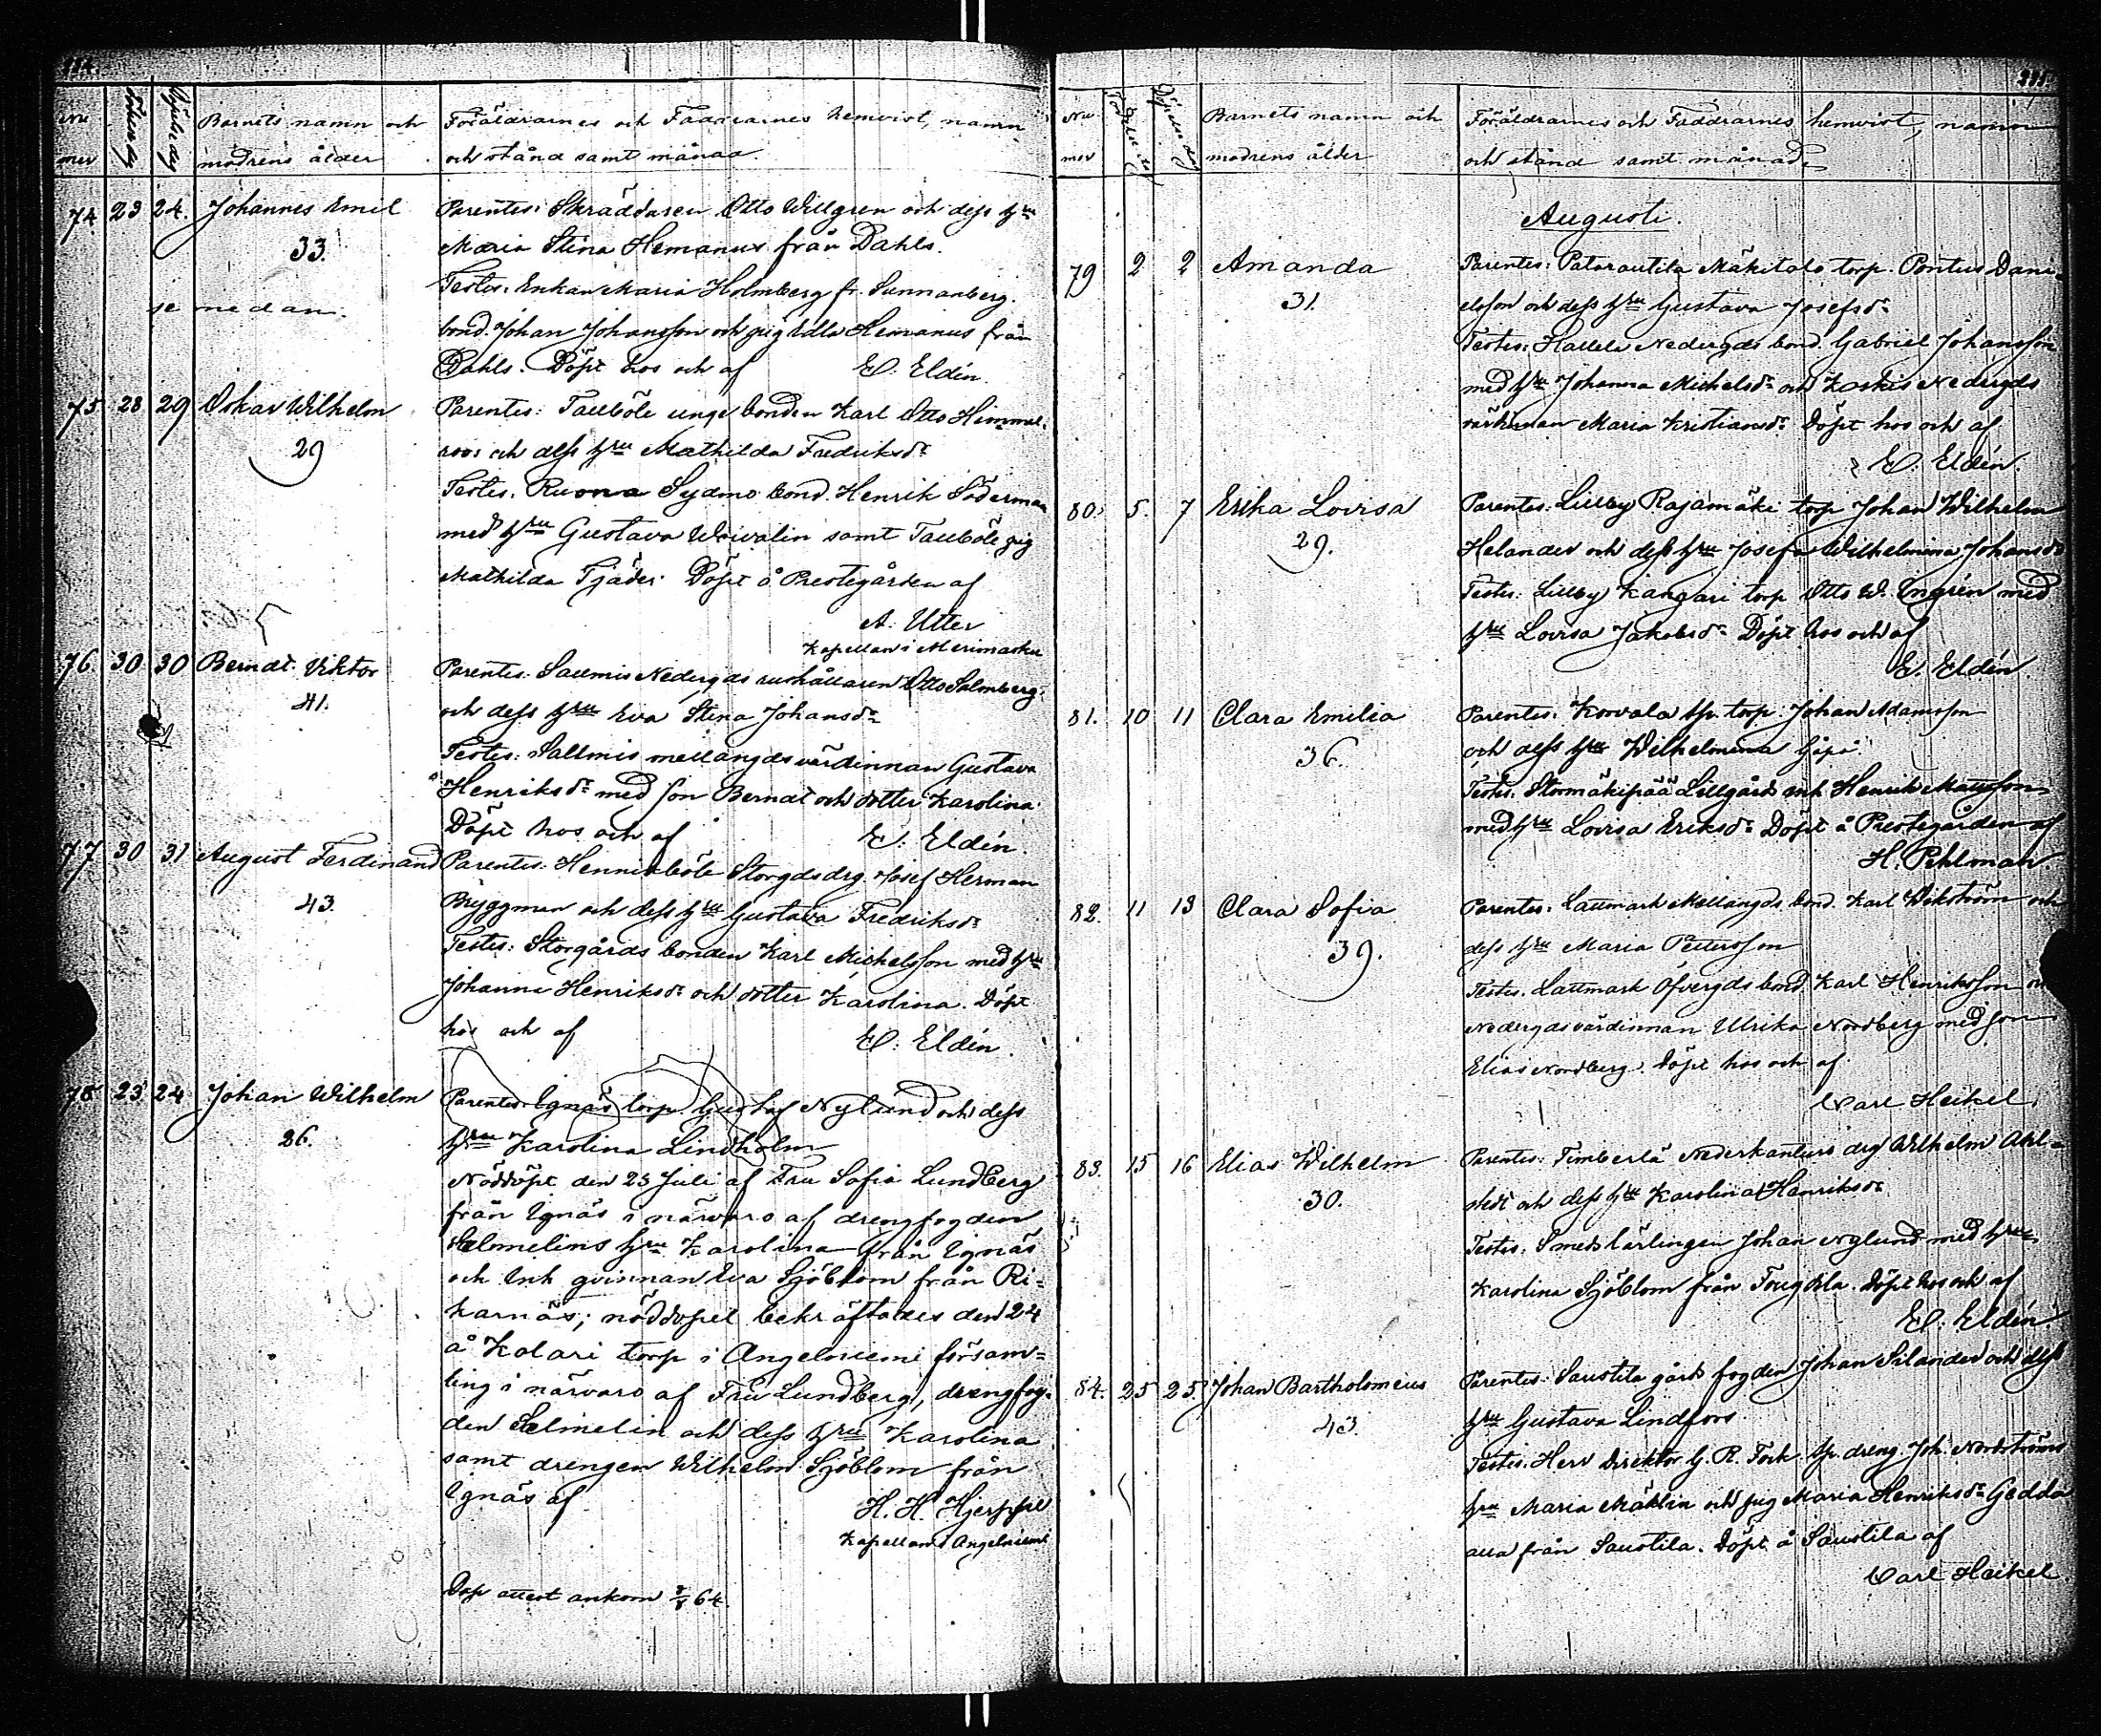 Nu
mer
Födelsedag
Döpelsedag
Barnets namn och
modrens ålder
Föräldrarnes och Faddrarnes hemvist, namn
och stånd samt månad.
74 23 24. Johannes Emil
33.
Parentes: Skräddaren Otto Willgren och dess hru
Maria Stina Hemanus från Dahls.
Testes: Enkan Maria Holmberg fr. Sunnanberg.
bond. Johan Johansson och pig Ulla Hemanus från
Dahls. Döpt hos och af E. Eldén.
se nedan.
75 28 29 Oskar Wilhelm
29
Parentes: Tauböle unge bonden Karl Otto Himmel-
roos och dess hru Mathilda Fredriksdr
Testes: Ruona Sydmo bond. Henrik Söderman
med hru Gustava Weivalin samt Tauböle pig
Mathilda Tjäder. Döpt å Prestegården af
A. Utter
Kapellan i Merimasku
76. 30 30 Berndt Viktor
41.
Parentes: Sallmis Nedergds rushållaren Otto Salmberg
och dess hru Eva Stina Johansdr
Testes: Sallmis mellangds värdinnan Gustava
Henriksdr med son Berndt och dotter Karolina.
Döpt hos och af E. Eldén.
77 30 31 August Ferdinand
43.
Parentes: Hennikböle Storgds drg. Josef Herman
Bryggman och dess hru Gustava Fredriksdr
Testes: Storgårds bonden Karl Michelsson med hru
Johanna Henriksdr och dotter Karolina. Döpt
hos och af E. Eldén.
78 23 24 Johan Wilhelm
26.
Parentes: Ignäs torp. Gustaf Nylund och dess
hru Karolina Lindholm
Nöddöpt den 23 Juli af Fru Sofia Lundberg
från Ignäs i närvaro af drengfogden
Selmelins hru Karolina från Ignäs
och Inh qvinnan Eva Sjöblom från Ri-
karnäs; nöddopet bekräftades den 24
å Kolari torp i Angelniemi försam-
ling i närvaro af Fru Lundberg, drengfog-
den Selmelin och dess hru Karolina
samt drengen Wilhelm Sjöblom från
Ignäs af H. H. Hjerppe
Kapellan i Angelniemi
Dop attest ankom 64.
215
Nu
mer
Födelsedag
Döpelsedag
Barnets namn och
modrens ålder
Föräldrarnes och Faddrarnes hemvist, namn
och stånd samt månad.
Augusti.
79 2 2 Amanda
31.
Parentes: Patarautila Mäkitalo torp. Pontus Dani-
elsson och dess hru Gustava Josefsdr
Testes: Hallela Nedergds bond. Gabriel Johansson
med hru Johanna Michelsdr och Koskis Nedergds
värdinnan Maria Kristiansdr Döpt hos och af
E. Eldén.
80. 5. 7 Erika Lovisa
29.
Parentes: Lillby Rajamäki torp Johan Wilhelm
Helander och dess hru Josefa Wilhelmina Johansdr
Testes: Lillby Kangari torp Otto W. Engrén med
hru Lovisa Jakobsdr Döpt hos och af
E. Eldén.
81. 10 11 Clara Emilia
36.
Parentes: Korvala torp. Johan Adamsson
och dess hru Wilhelmina
Testes: Stormäkipää Lillgårds inh Henrik Mattsson
med hru Lovisa Eriksdr Döpt å Prestegården af
H. Pihlman.
82. 11 13 Clara Sofia
39.
Parentes: Lautmark Mellangds bond. Karl Wikström och
dess hru Maria Pettersson
Testes. Lautmark Öfvergds bond Karl Henriksson
Nedergds värdinnan Ulrika Nordberg med son
Elias Nordberg. Döpt hos och af
Carl Heikel.
83. 15 16 Elias Wilhelm
30.
Parentes: Timberlä Nederkanturs drg Wilhelm Ahl-
stedt och dess hru Karolina Henriksdr
Testes: Smedslärlingen Johan Nylund med hru
Karolina Sjöblom från Tougdla. Döpt hos och af
E. Eldén
84. 25 25. Johan Bartholomeus
43.
Parentes: Saustila gårds fogden Johan Silander och dess
hru Gustava Lindfors.
Testes: Herr Direktor G. R. Fock dreng. Joh. Nordströms
hru Maria Mäklin och pig Maria Henriksdr Gedda
alla från Saustila. Döpt å Saustila af
Carl Heikel